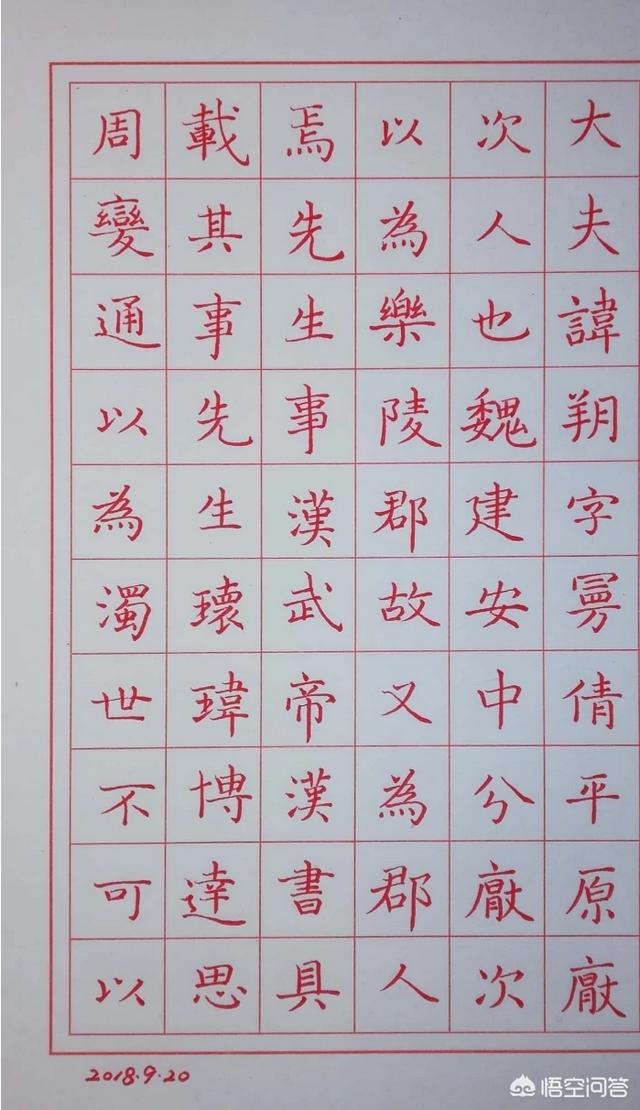 大夫諱朔字曼倩平原厭
次人也魏建安中分厭次
以為樂陵郡故又為郡人
焉先生事漢武帝漢書具
載其事先生瓌瑋博達思
周變通以為濁世不可以
2018.9.20
悟空问答